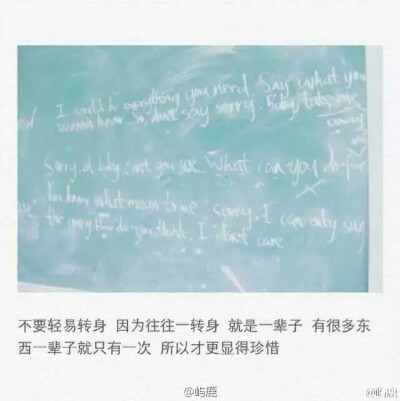 I would be everything you need. Say what you
wanna hear. So, don't say sorry. Baby, take me
away
Sorry, oh baby can't you see What can you do for
You know what mean to me sorry. I can only say
you think. I don't care
不要轻易转身 因为往往一转身 就是一辈子 有很多东
西一辈子就只有一次 所以才更显得珍惜
@屿鹿